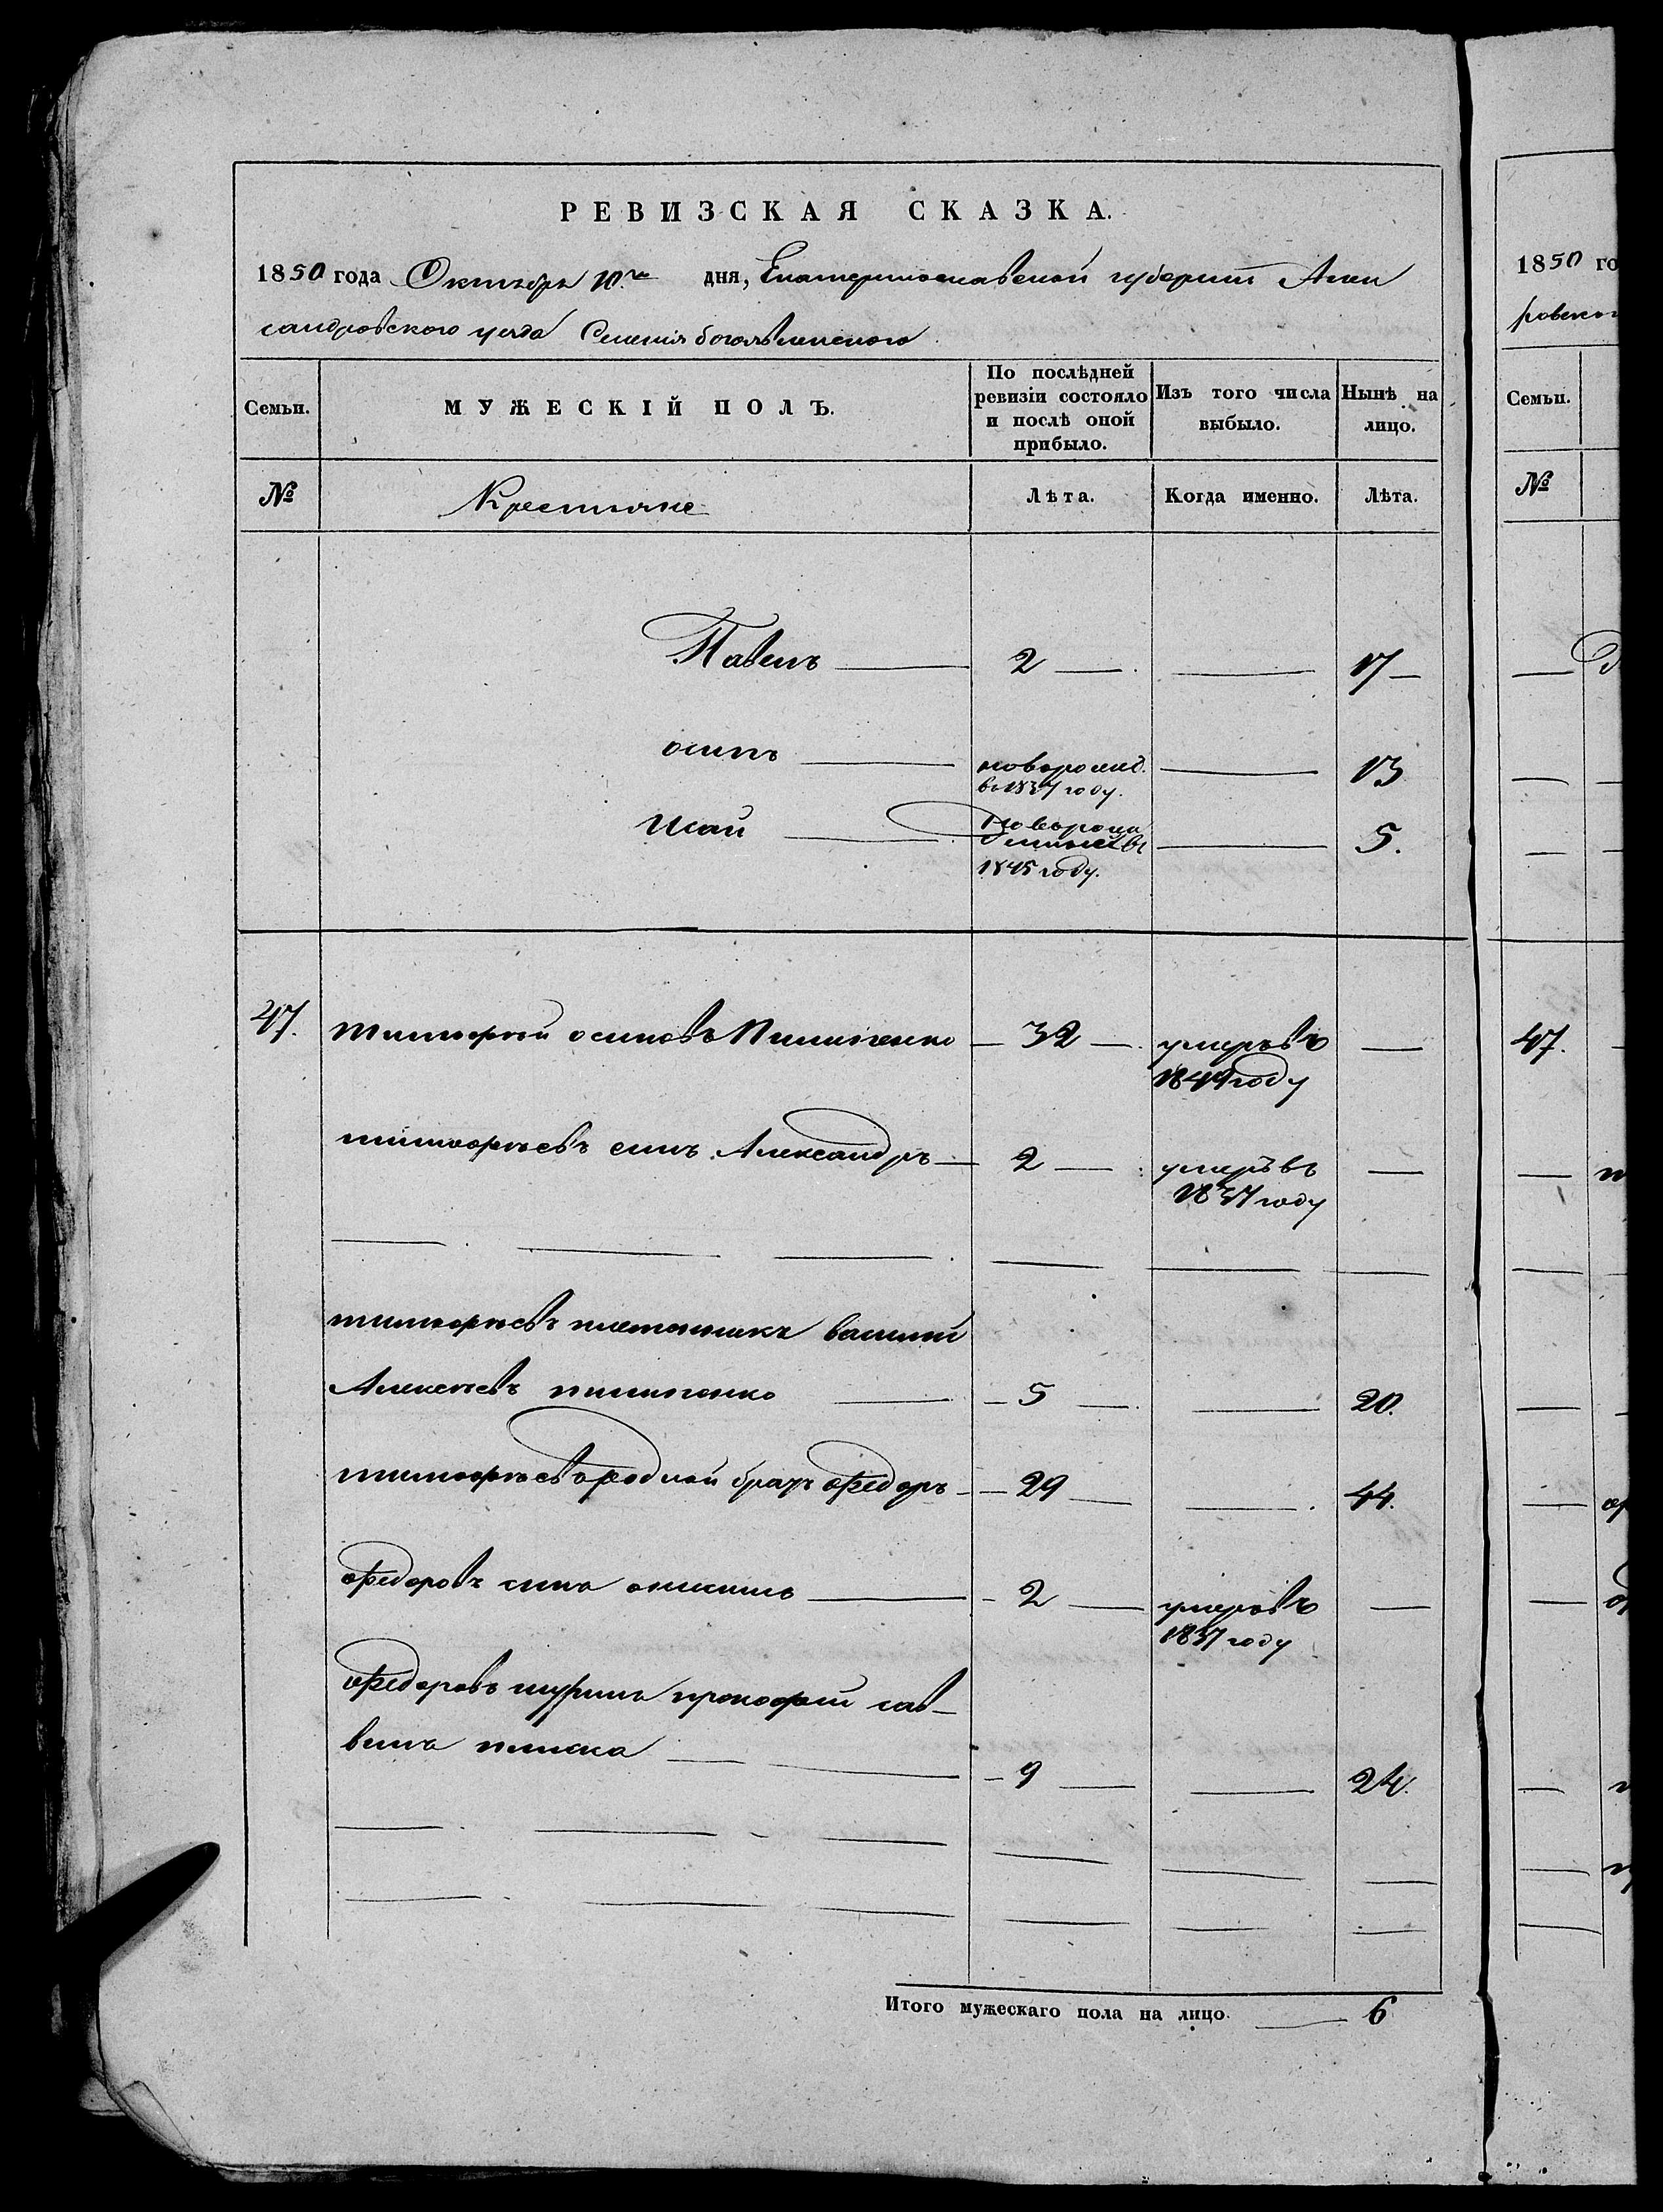 РЕВИЗСКАЯ СКАЗКА.
1850 года Октября 10.го дня, Екатеринославской губернии Алек
сандровского уезда Селенія богоявленского
Семьи.
МУЖЕСКІЙ ПОЛЪ.
По послѣдней ревизіи состояло и послѣ оной прибыло.
Изъ того числа выбыло.
Нынѣ на лицо.
№
Крестьяне
Лѣта.
Когда именно.
Лѣта.
Павелъ 2 17
осипъ новорожд. 13
въ 1837 году.
Исай новорож 5.
денный въ
1845 году.
47. тимофей осиповъ 32 умеръ въ
1849 году
тимофеевъ сынъ Александръ 2 умеръ въ
1837 году
тимофеевъ племянникъ василий
Алексеевъ 5 20.
тимофеевъ родной братъ федоръ 29 44.
федоровъ сынъ 2 умеръ въ
1837 году
федоровъ шуринъ прокофий сав-
винъ 9 24.
Итого мужескаго пола на лицо. 6
1850 го
ровског
Семьи.
№
47.